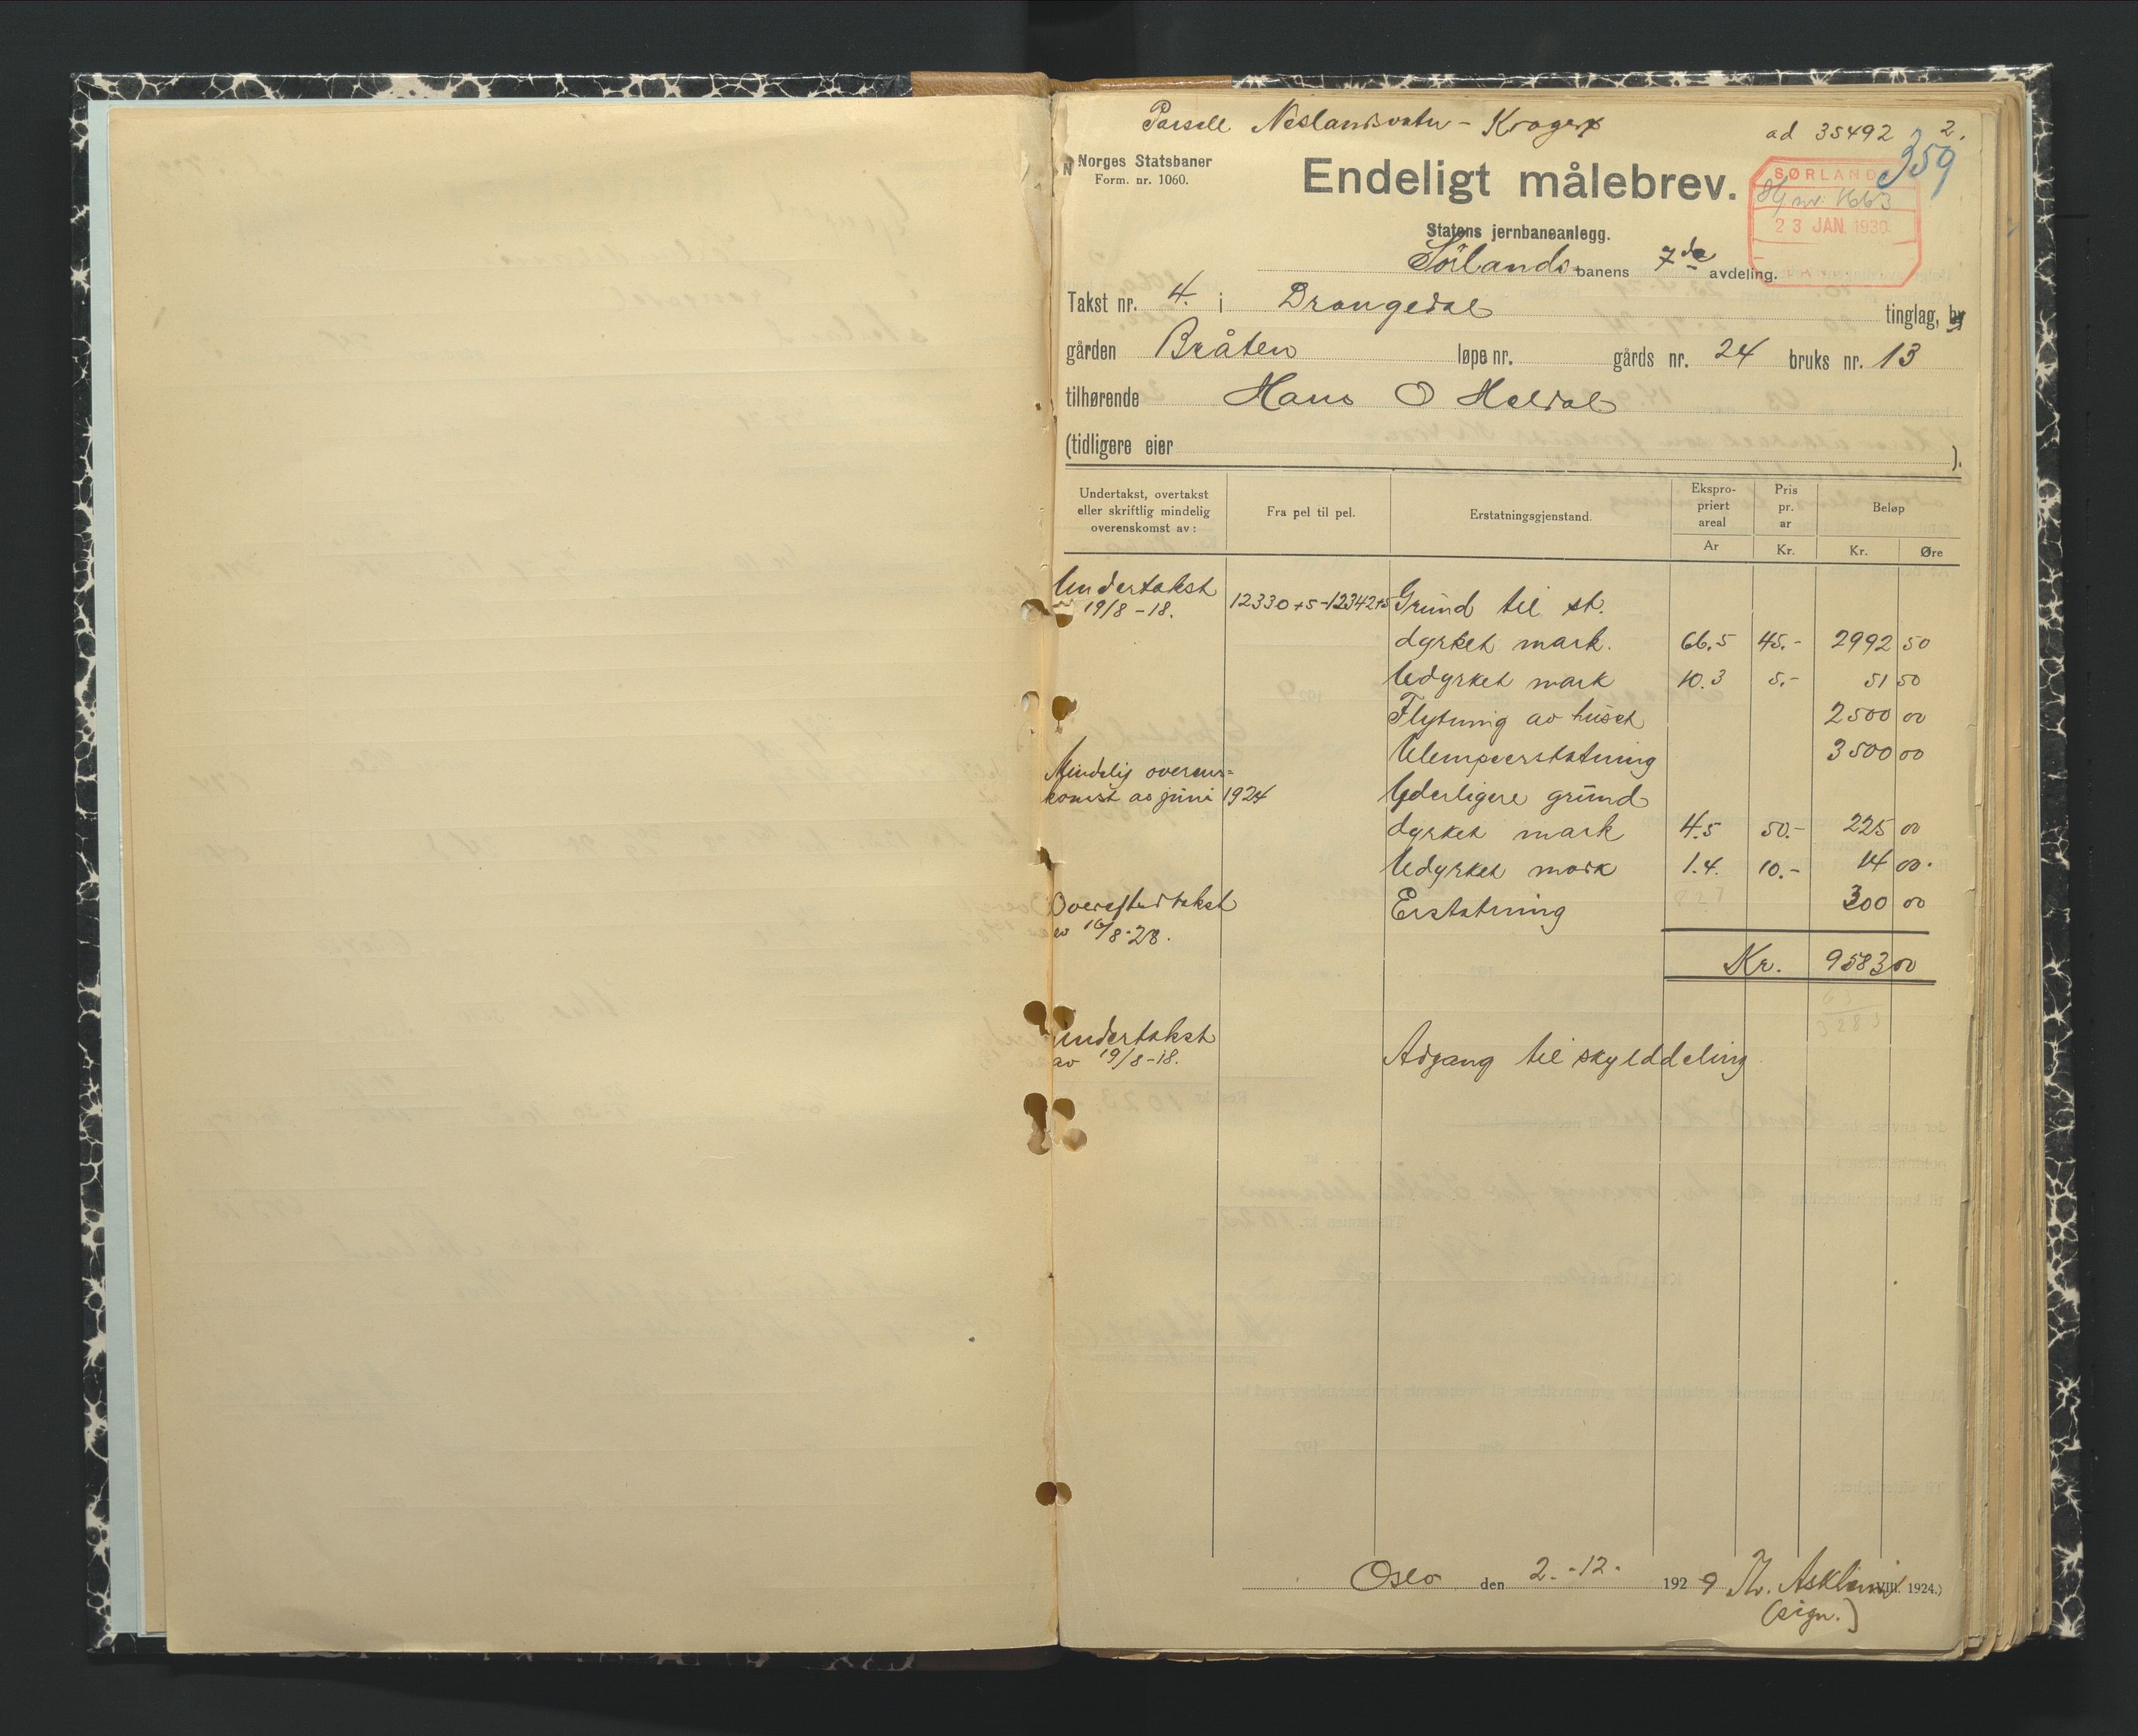 Parsell Neslandsvatn - Kragerø
ad 35492 2.
359
Norges Statsbaner
Form. nr. 1060.
Endeligt målebrev.
SØRLAND
23 JAN. 1930
Statens jernbaneanlegg.
Sørlands banens 7de avdeling.
Takst nr. 4. i Drangedal tinglag, by
gården Bråten løpe nr. gårds nr. 24 bruks nr. 13
tilhørende Hans O Heldal
(tidligere eier ).
Undertakst, overtakst eller skriftlig mindelig overenskomst av: Fra pel til pel. Erstatningsgjenstand. Ekspropriert areal Pris pr. ar Beløp
Ar Kr. Kr. Øre
Undertakst 12330+5-12342+5 Grund til st.
19/8-18.
dyrket mark. 66.5 45.- 2992 50
Udyrket mark 10.3 5.- 51 50
Flytning av huset 2500 00
Ulempeerstatning 3500 00
Mindelig overens=
komst av juni 1924 Yderligere grund
dyrket mark 4.5 50.- 225 00
Udyrket mark 1.4. 10.- 14 00.
Overeftertakst Erstatning 300 00
av 16/8-28.
Kr. 9583 00
Undertakst
av 19/8-18. Adgang til skylddeling
Oslo den 2.-12. 1929 Th. Asklund VIII. 1924.)
(sign.)